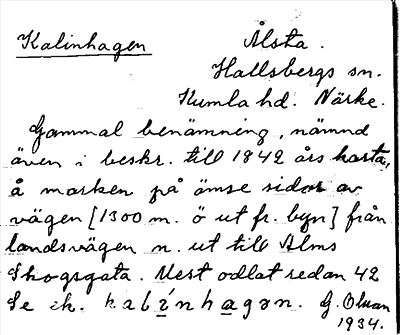 Kalinhagen Ålsta.
Hallsbergs sn.
Kumla hd. Närke.
Gammal benämning, nämnd
även i beskr. till 1842 års karta,
å marken på ömse sidor av
vägen [1300 m. ö ut fr. byn] från
landsvägen n. ut till Alms
Skogsgata. Mest odlat redan 42
Se ek. kalínhagən. G. Olsson
1934.